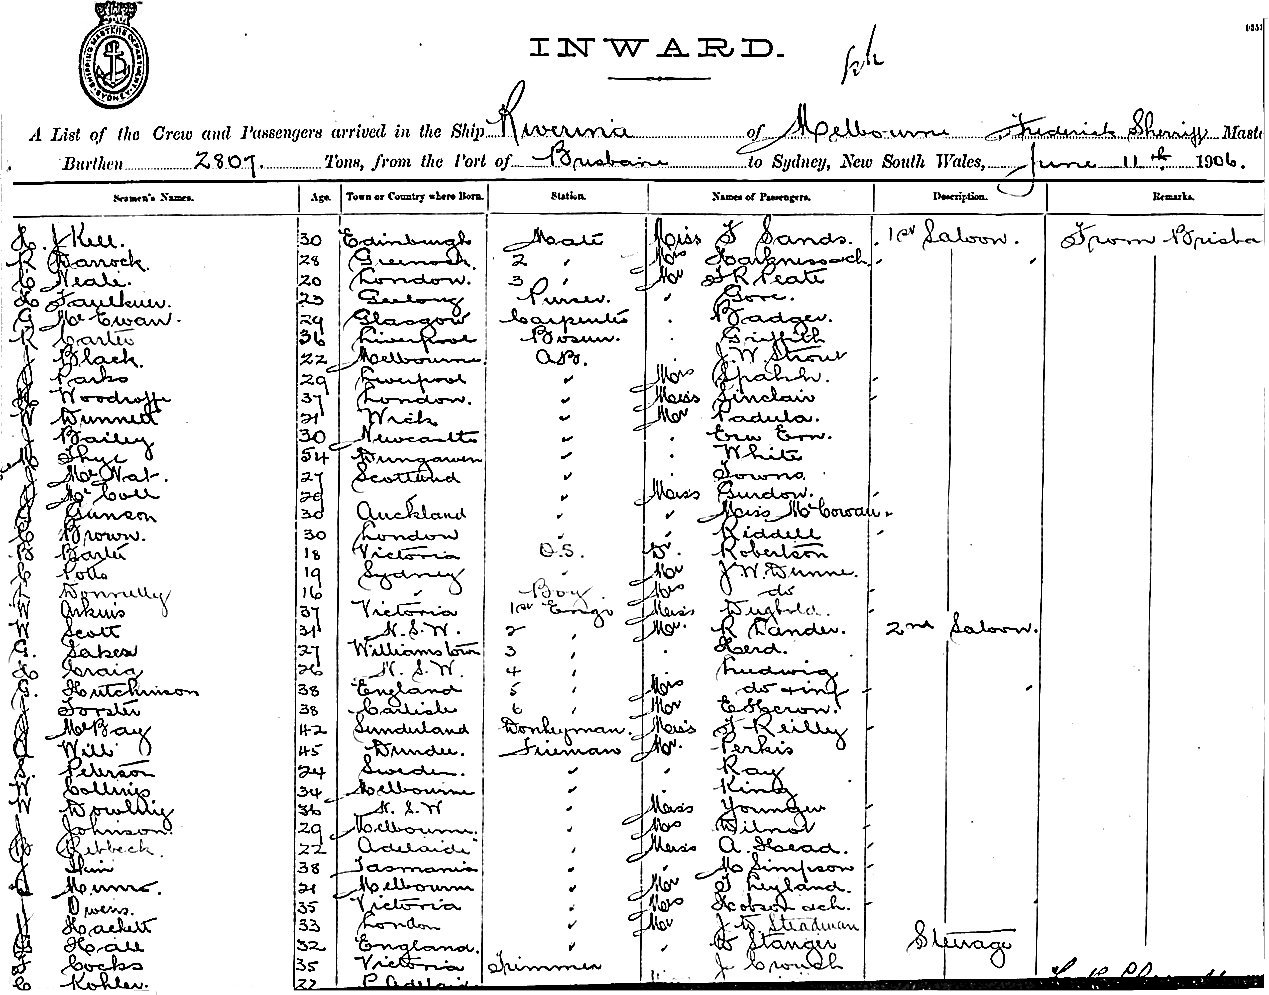 SHIPPING MASTERS DEPARTMENT SYDNEY
INWARD.
A List of the Crew and Passengers arrived in the Ship Riverina of Melbourne Frederick Sherriff Maste
Burthen 2807. Tons, from the Port of Brisbane to Sydney, New South Wales, June 11th 1906.
Seamen's Names. Age. Town or Country where Born. Station. Names of Passengers. Description. Remarks.
J Kell. 30 Edinburgh Mate Miss F Sands. 1st Saloon. From Brisba
R Darrock. 28 Greenock 2 " Mrs Harkness & ch.
C Neale. 20 London. 3 " Mr F R Peate
H Faulkner. 23 Geelong Purser. " Gore.
McEwan. 29 Glasgow Carpenter Badger.
R Carter 36 Liverpool Bosun. Griffith
J Black. 22 Melbourne. A.B. J. W. Strout
J Parks 29 Liverpool " Mrs
Woodroffe 37 London. " Miss Sinclair
W Dunnett 21 Wick " Mr Padula.
J Bailey 30 Newcastle "
54 Dungarvan " White
McNab. 27 Scotland " Towns.
McColl 26 " " Miss Gurdon.
Gunson 30 Auckland " " Miss McCowan
C Brown. 30 London " " Riddell
Barter 18 Victoria O.S. Dr. Robertson
C Potts 19 Sydney " Mr J. W. Dunne.
Donnelly 16 " Boy. Mrs do
W 37 Victoria 1st Engr Miss
W Scott 31 N.S.W. 2 " Mr. R Lander. 2nd Saloon.
G. Sakes 27 Williamstown 3 " Herd.
Craig 26 N.S.W. 4 " Ludwig
G. Hutchinson 38 England 5 " Mrs do & inf
J Forster 38 Carlisle 6 " Mr E Heron.
J McBay 42 Sunderland Donkeyman. Miss F Reilly
Will 45 Dundee. Fireman Mr. Perkis
Peterson 24 Sweden. " " Ray
W Collings 34 Melbourne " " King
W Dowling 36 N.S.W " Miss Younger
J Johnson 29 Melbourne. " Mrs Wilmot
Ribbeck. 22 Adelaide " Miss A. Head.
38 Tasmania " " M Simpson
Munro. 21 Melbourne " Mr T Leyland.
Owens. 35 Victoria " Mrs Hobson & ch.
J Hackett 33 London " Mr J. W. Steadman
Hall 32 England. " " W Stanger Steerage
F Cocks 35 Victoria Trimmer " J Crouch
C Kohler. 22 P. Adelaide